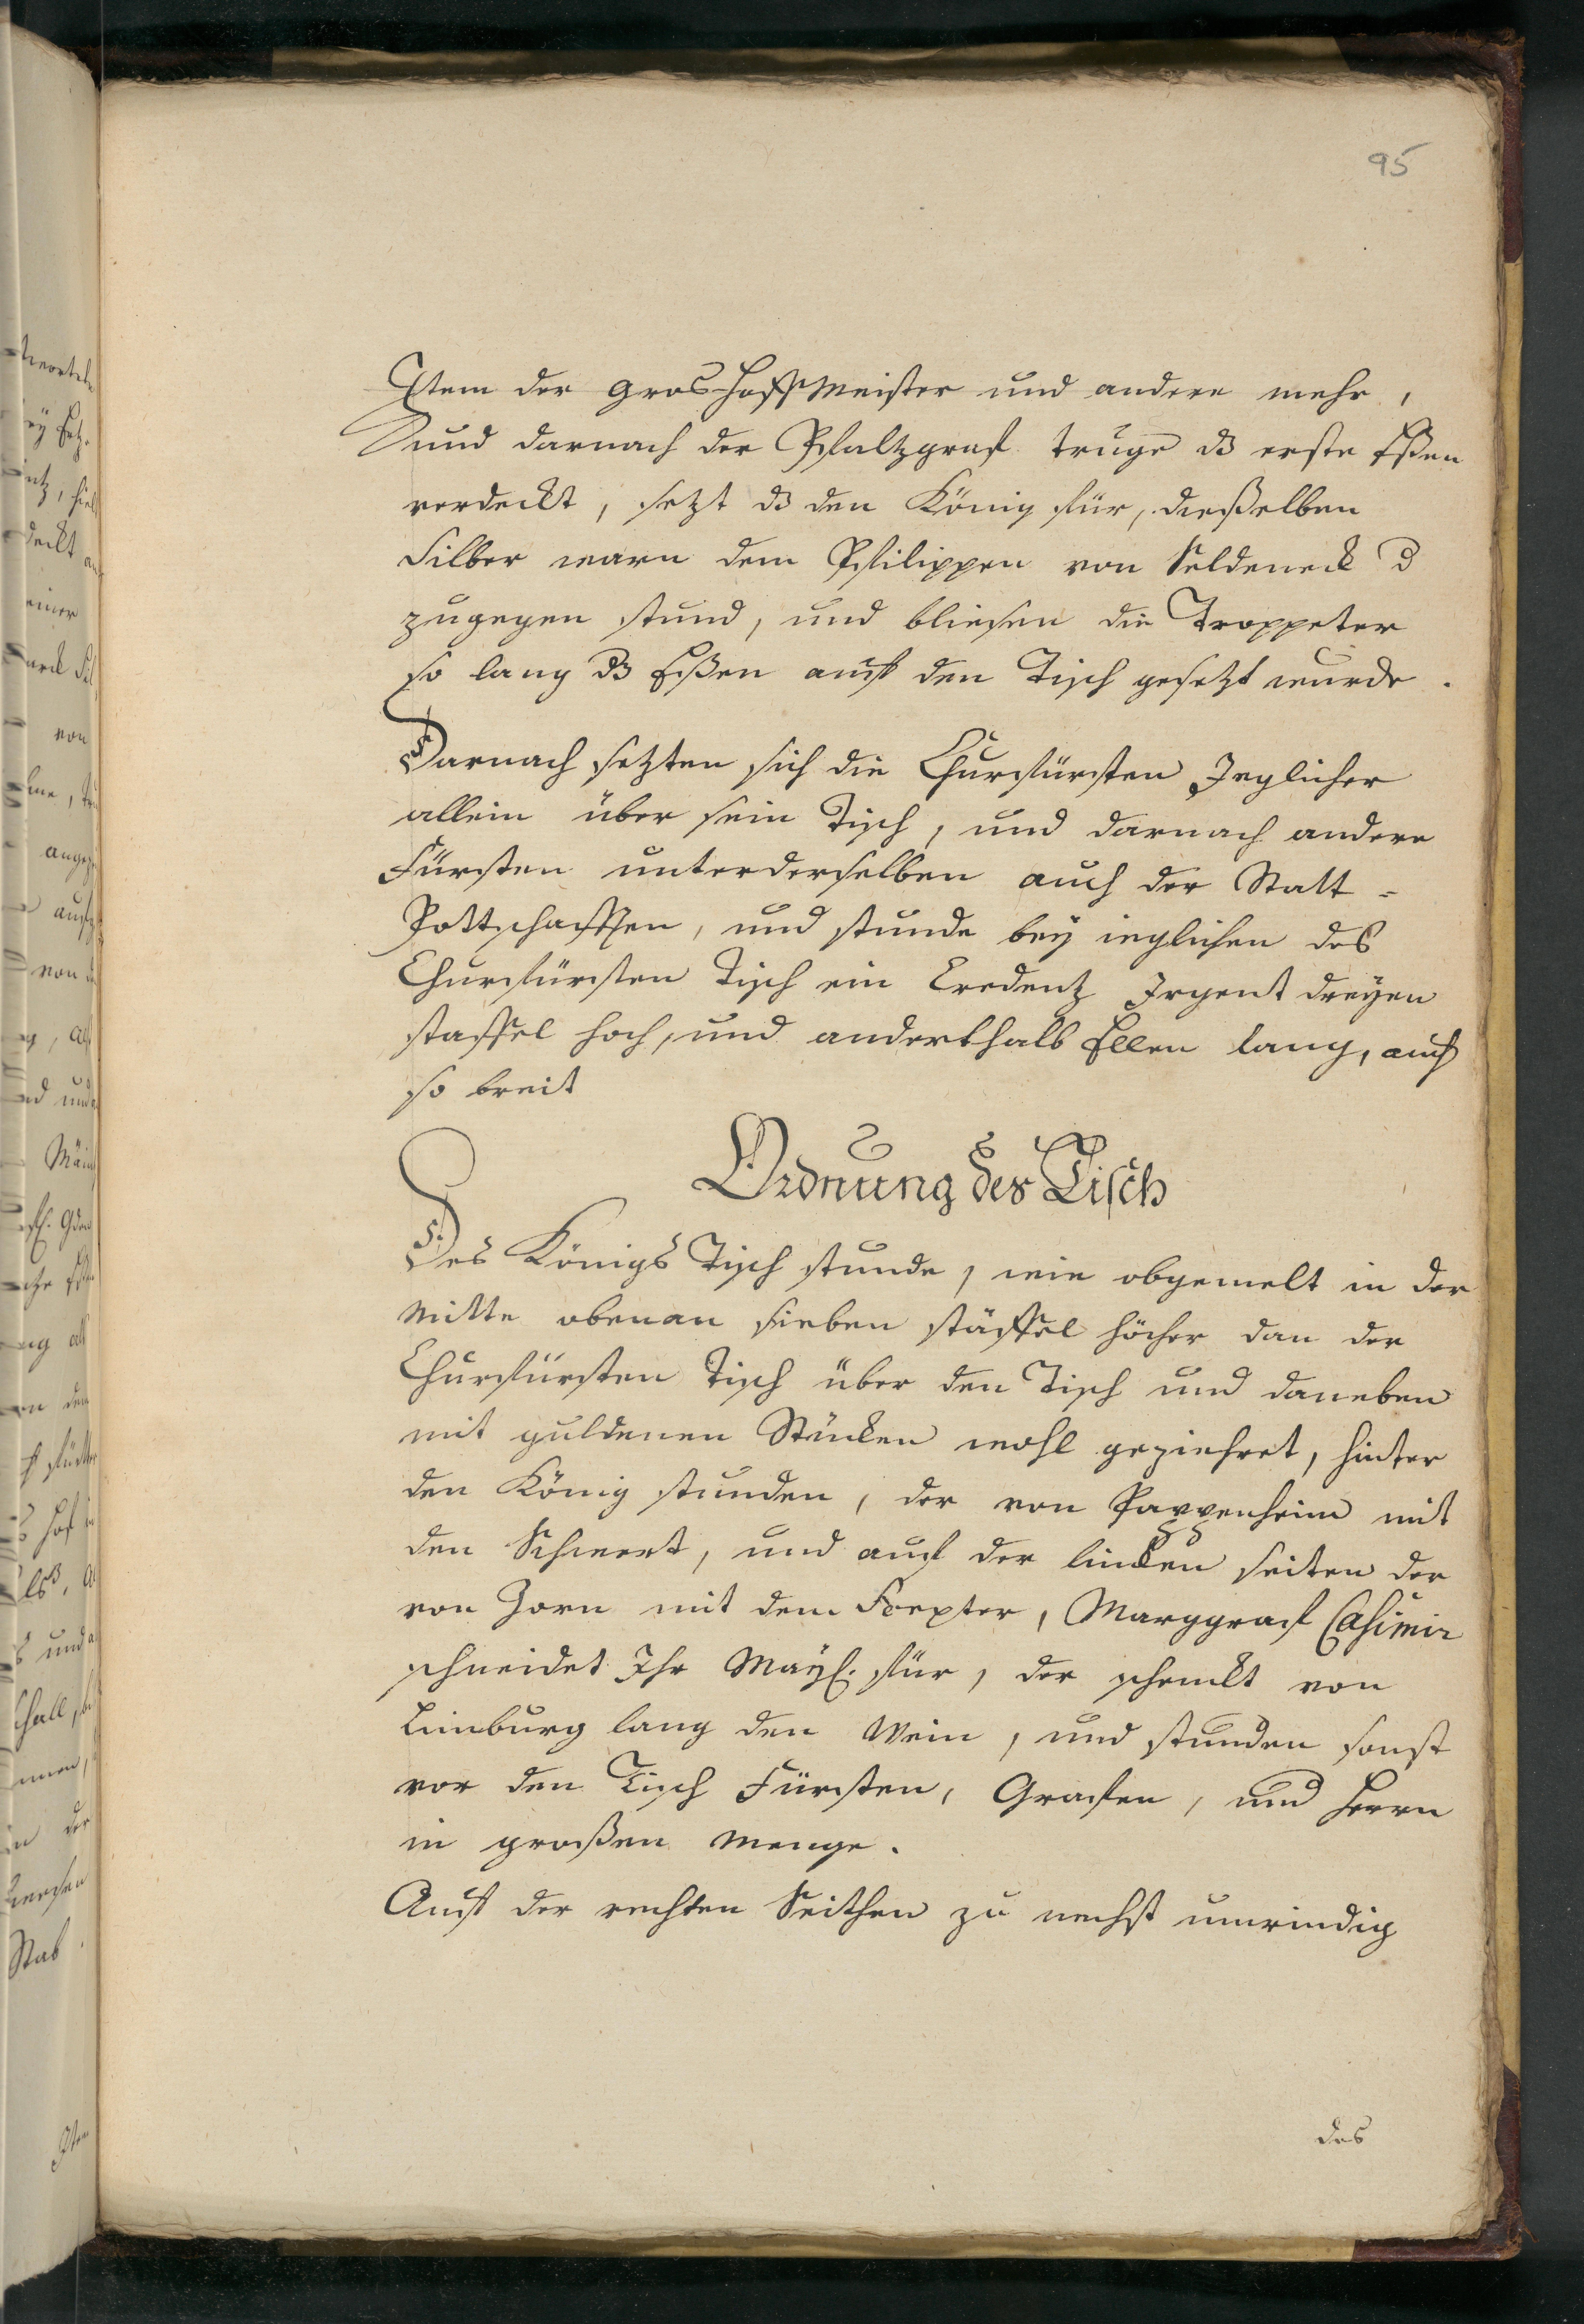 95
Item der Gros-Hoffmeister und andere mehr,
und darnach der Pfaltzgraf truge dß erste Eßen
verdeckt, setzt dß den König für, dießelben
Silber warn dem Philippen von Seldeneck d
zugegen stund, und bliesen die Trompeter
so lang dß Eßen auff den Tisch gesetzt wurde.
Darnach setzten sich die Churfürsten Jeglicher
allein über sein Tisch, und darnach andere
Fürsten unterderselben auch der Statt-
Pottschafften, und stunde bey ieglichen des
Churfürsten Tisch ein Credentz Irgent dreyen
staffel hoch, und anderthalb Ellen lang, auch
so breit
Ordnung der Tisch
Des Königs Tisch stunde, wie obgemelt in der
Mitte obenan sieben stäffel höcher dan der
Churfürsten Tisch über den Tisch und daneben
mit guldenen Stücken wohl geziehret, hinter
den König stunden, der von Pappenheim mit
den Schwert, und auf der lincken seiten der
von Zorn mit dem Scepter, Marggraf Casimir
schneidet Ihr Mayl. für, der schenckt von
Limburg lang den Wein, und stunden sonst
vor den Tisch Fürsten, Grafen, und Herrn
in großen Menge.
Auff der rechten Seithen zu nechst umwindig
des